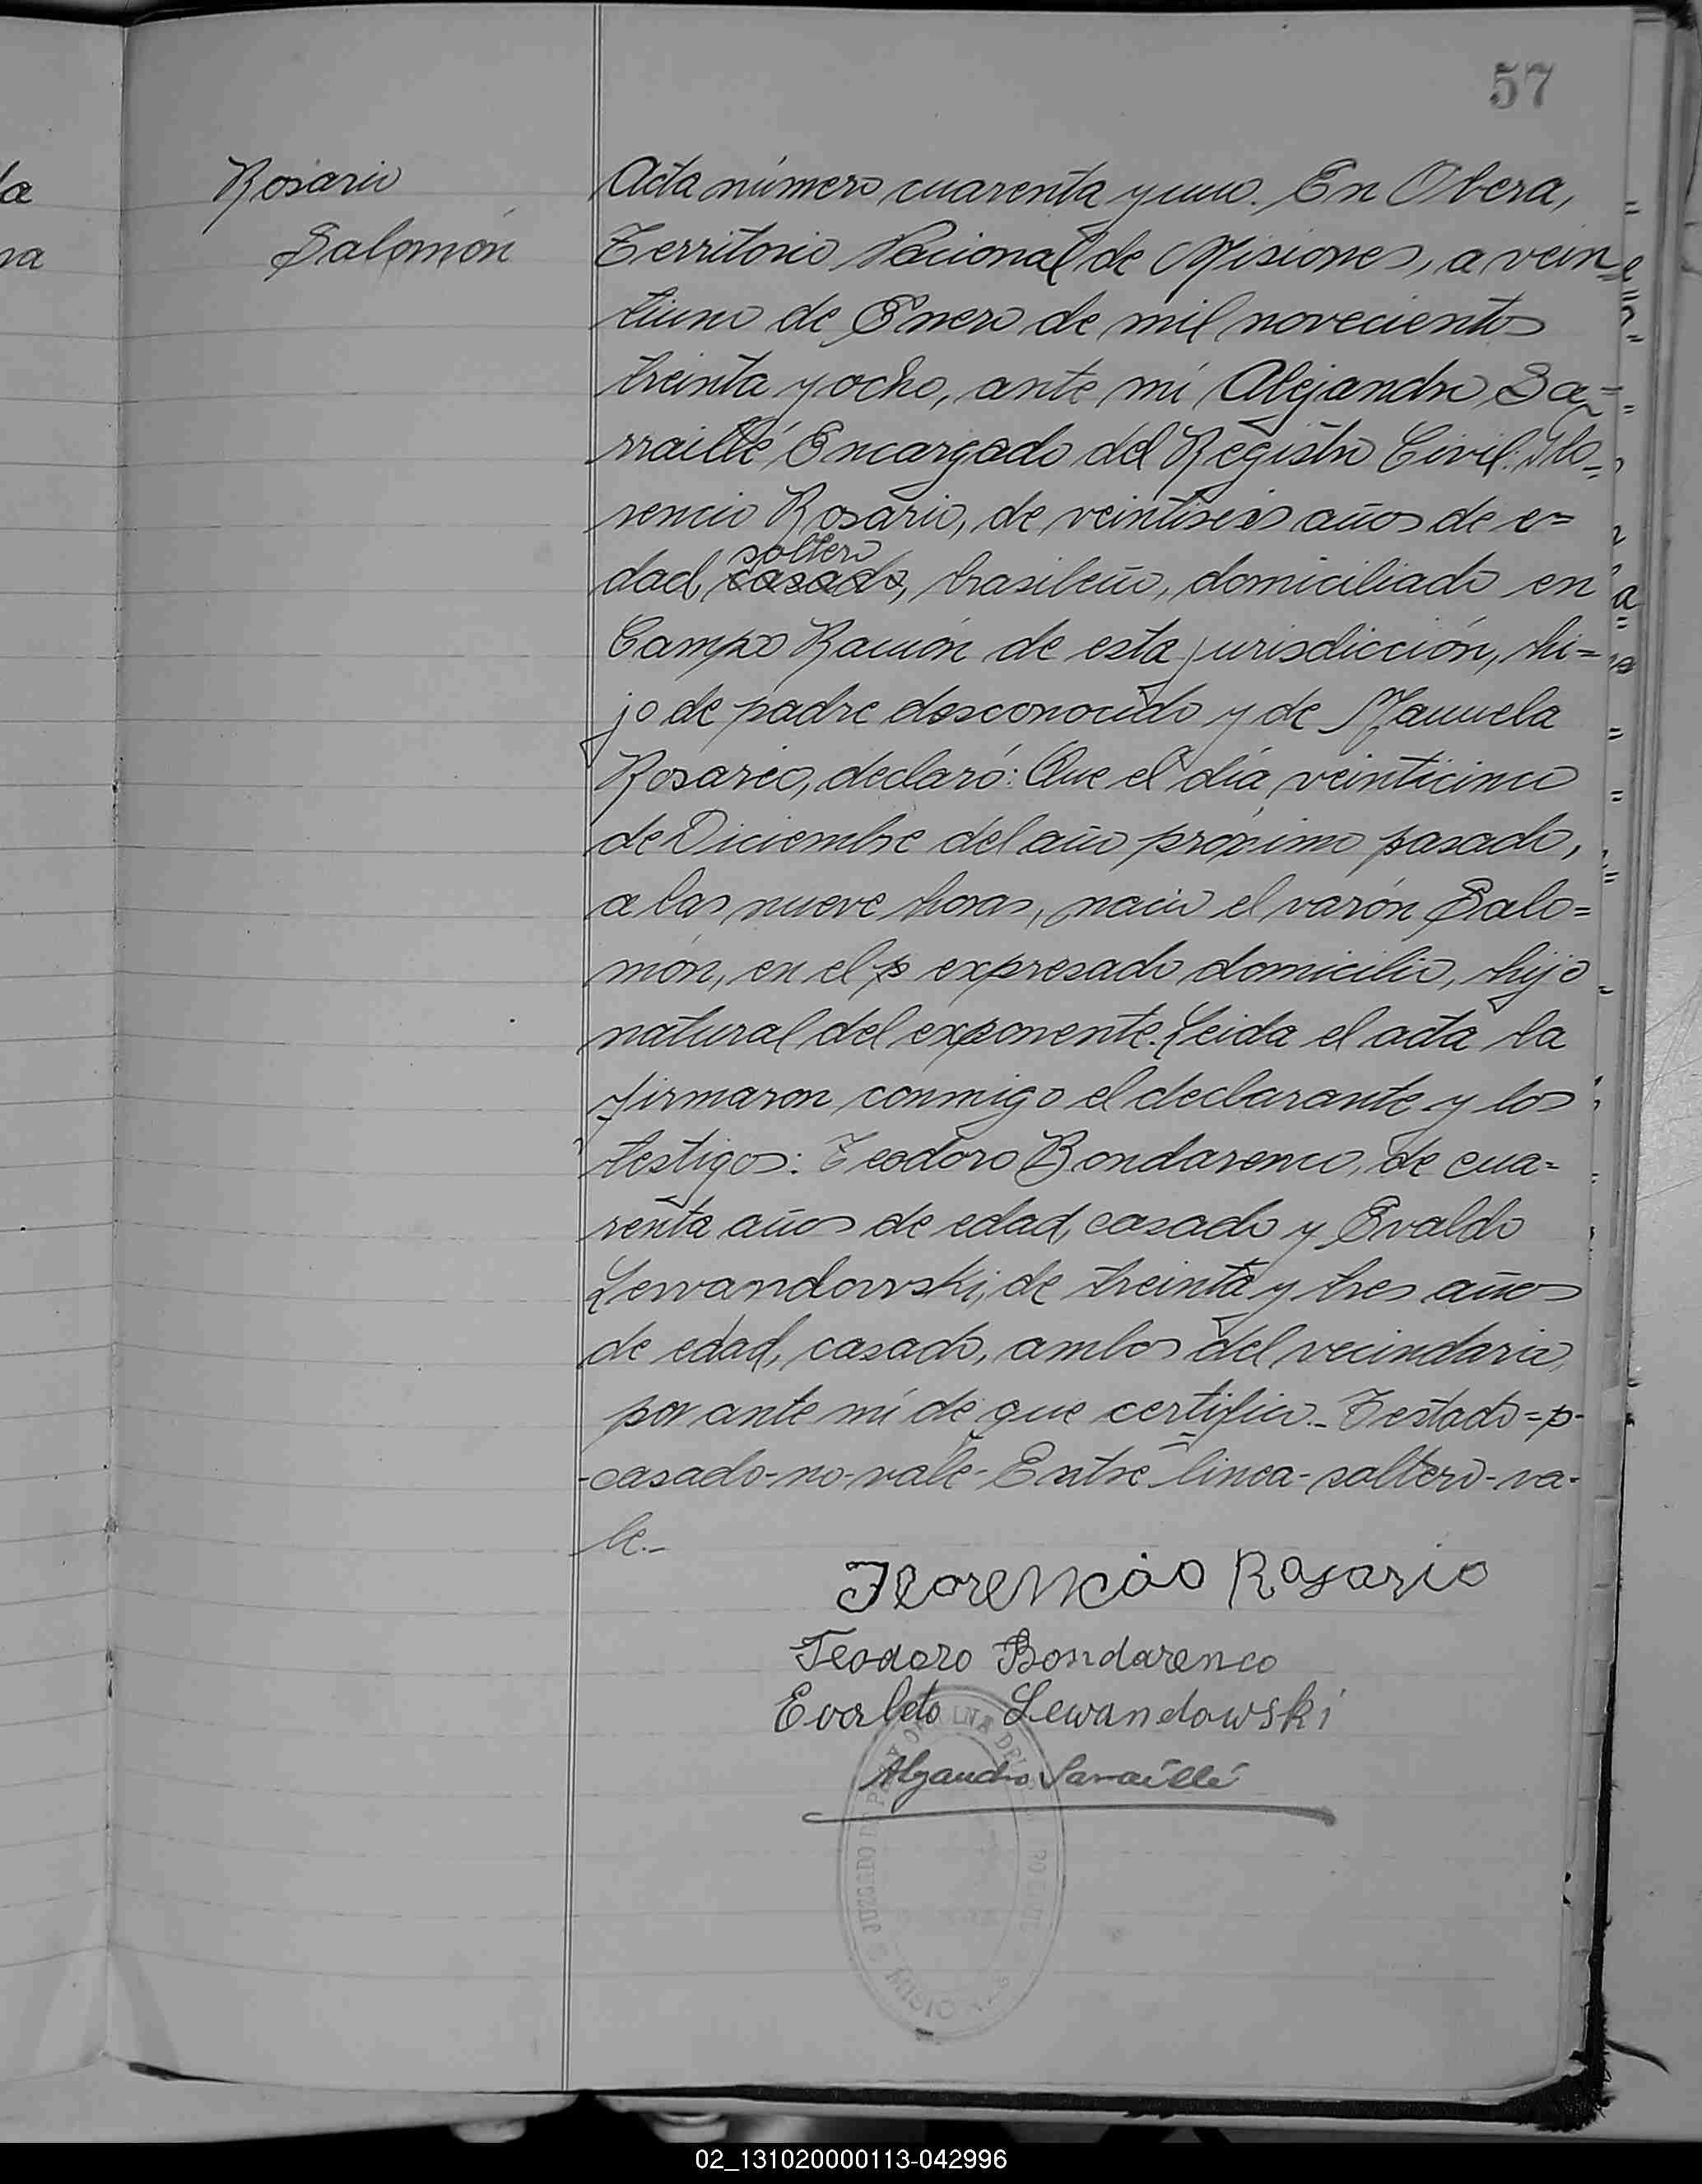 57
Rosario
Salomón
Acta número cuarenta y uno. En Obera,
Territorio Nacional de Misiones, a vein=
tiuno de Enero de mil novecientos
treinta y ocho, ante mí Alejandro Sa=
rraillé Encargado del Registro Civil: Flo=
rencio Rosario, de veintiseis años de e=
soltero
dad, casado, brasileño, domiciliado en
Campo Ramón de esta jurisdicción, hi=
jo de padre desconocido y de Manuela
Rosario, declaró: Que el día veinticinco
de Diciembre del año próximo pasado,
a las nueve horas, nació el varón Salo=
món, en el p expresado domicilio, hijo
natural del exponente. Leida el acta la
firmaron conmigo el declarante y los
testigos: Teodoro Bondarenco, de cua=
renta años de edad, casado y Evaldo
Lewandowski, de treinta y tres años
de edad, casado, ambos del vecindario,
por ante mí de que certifico._ Testado=p-
-casado-no-vale-Entre linea-soltero-va-
le._
Florencio Rosario
Teodoro Bondarenco
Evaldo Lewandowski
Alejandro Sarraillé
JUZGADO DE PAZ Y OFICINA DEL
02_131020000113-042996